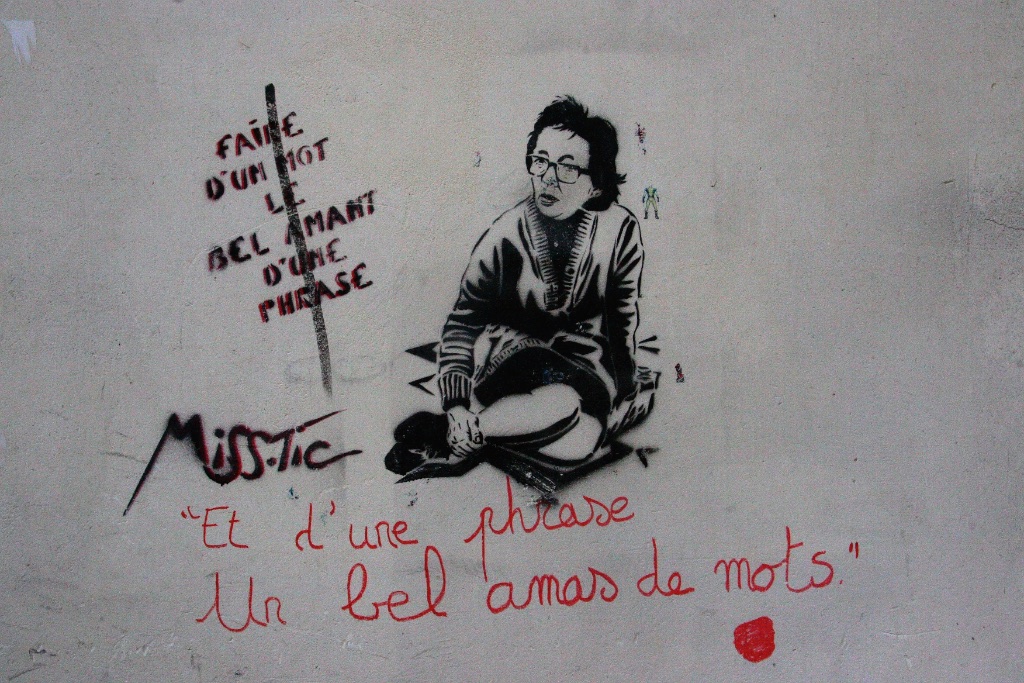 FAIRE
D'UN MOT
LE
BEL AMANT
D'UNE
PHRASE
MISS.TIC
"Et d'une phrase
Un bel amas de mots."